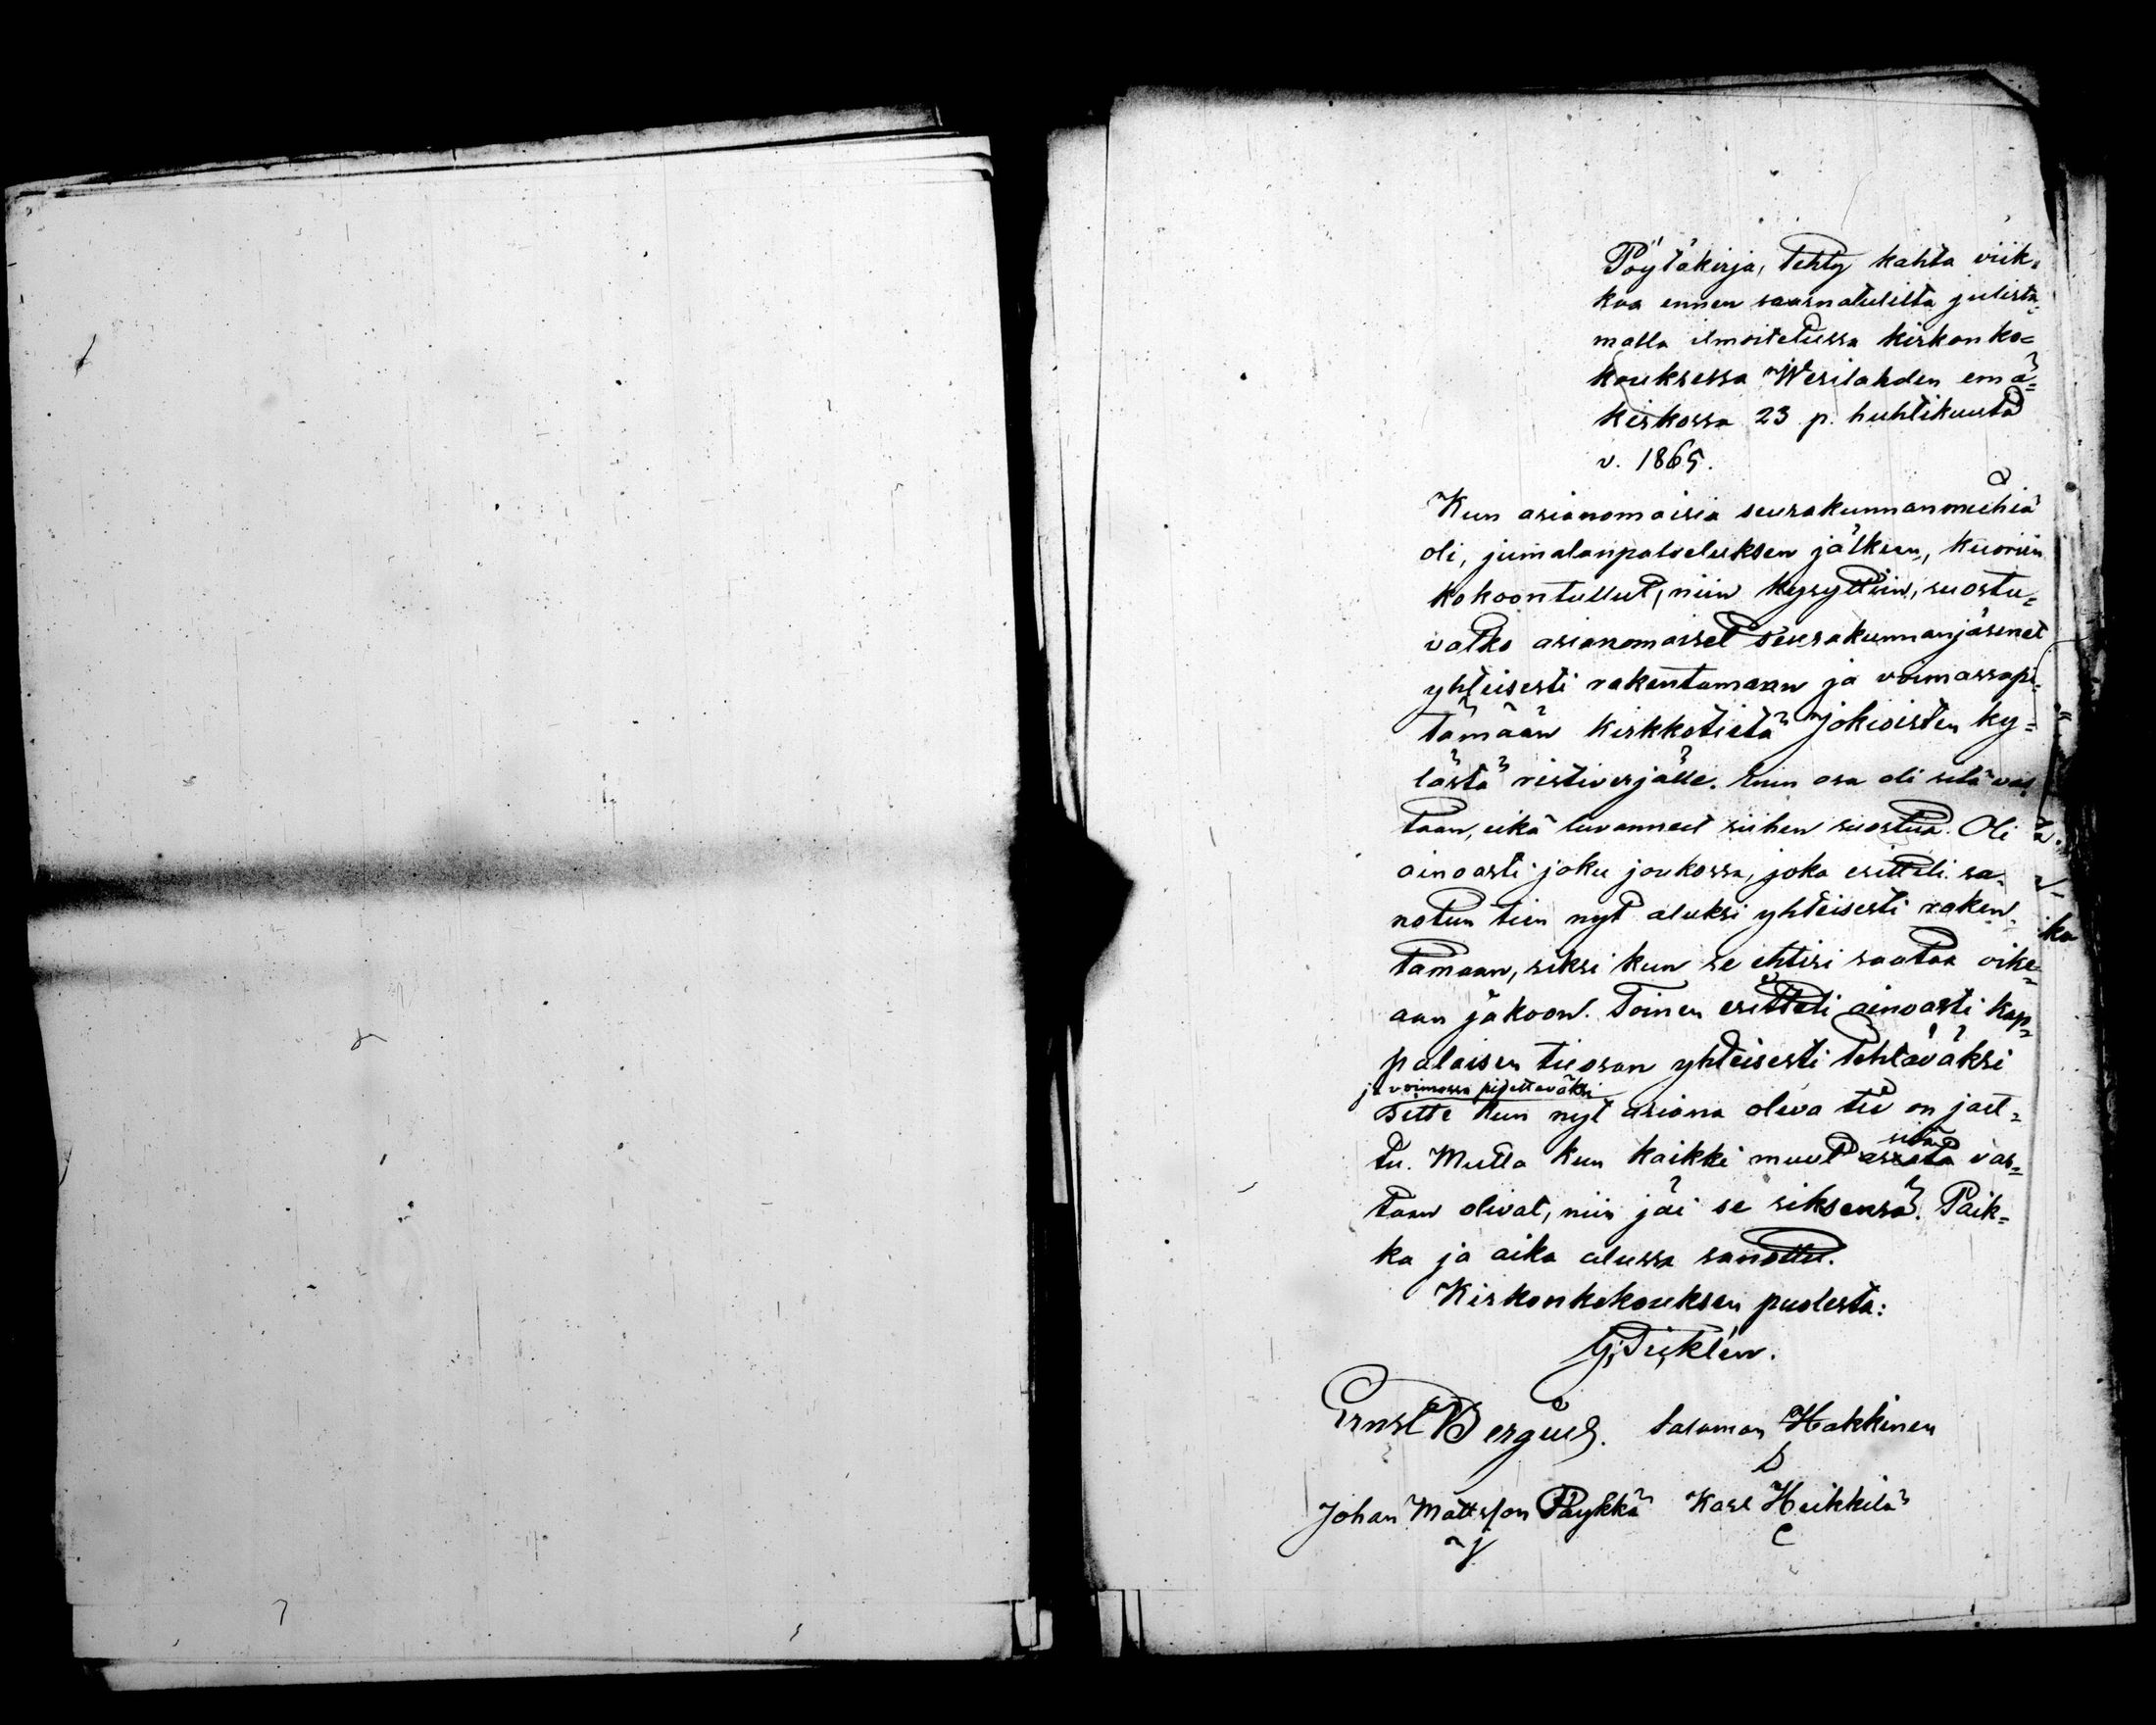 Pöytäkirja, tehty kahta viik-
koa ennen saarnatuolilta julista-
malla ilmoitetussa kirkonko=
kouksessa Wesilahden emä=
kirkossa 23 p. huhtikuuta
v. 1865.
Kun asianomaisia seurakunnanmiehiä
oli, jumalanpalveluksen jälkeen, kuoriin
kokoontullut, niin kysyttiin, suostu=
vatko asianomaiset seurakunnanjäsenet
yhteisesti rakentamaan ja voimassapi-
tämään kirkkotietä Jokioisten ky=
lästä ristiverjälle. Enin osa oli sitä vas-
taan, eikä luvanneet siihen suostua. Oli
ainoasti joku joukossa, joka esitteli sa-
notun tien nyt aluksi yhteisesti raken-
tamaan, siksi kun se ehtisi saataa oike=
aan jakoon. Toinen esitteli ainoasti kap=
palaisen tieosan yhteisesti tehtäväksi
ja voimassa pidettäväksi
sitte kun nyt asiana oleva tie on jaet=
tu. Mutta kun kaikki muut sitä vas=
taan olivat, niin jäi se siksensä. Paik=
ka ja aika alussa sanottu.
Kirkonkokouksen puolesta:
Ernst Bergius. Salomon Hakkinen
Johan Mattsson Päykkä Karl Heikkilä